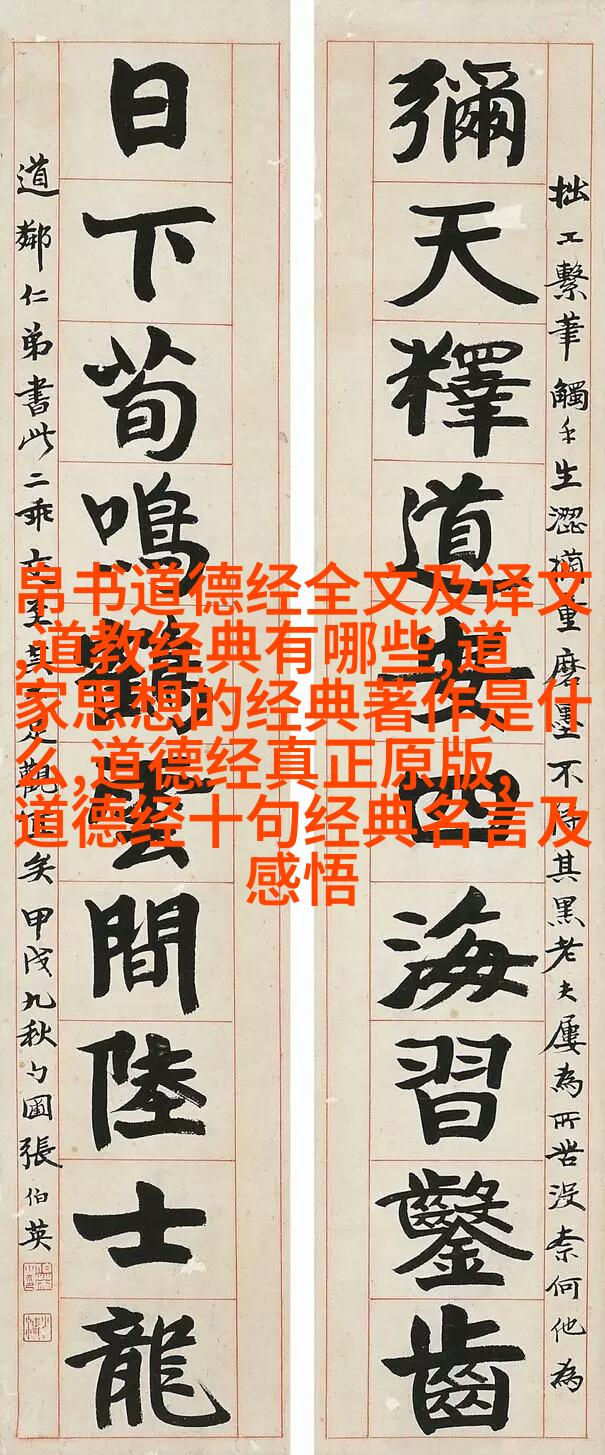 帛书道德经全文及译文
,道教经典有哪些,道
家思想的经典著作是什
么,道德经真正原版,
道德经十句经典名言及
感悟
拙工繫筆觸手生澀重磨墨不得其黑老夫屢為所苦沒奈何他為
彌天釋道安四海習鑿齒
日下荀鳴鶴雲間陸士龍
道鄰仁弟書此二乖至其足觀宜矣甲戌九秋勺圃張伯英